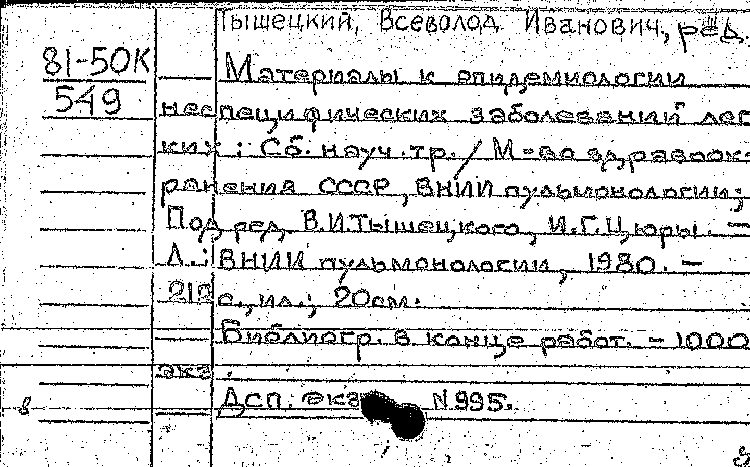 Тышецкий, Всеволод Иванович, ред.
81-50К
549
Материалы к эпидемиологии
неспецифических заболеваний лег
ких : Сб. науч. тр. / М-во здравоох-
ранения СССР, ВНИИ пульмонологии;
Под ред. В.И.Тышецкого, И.Г.Цюры. —
Л.: ВНИИ пульмонологии, 1980. —
212 с., ил.; 20см.
Библиогр. в конце работ. — 1000
экз.
Дсп. экз N 995.